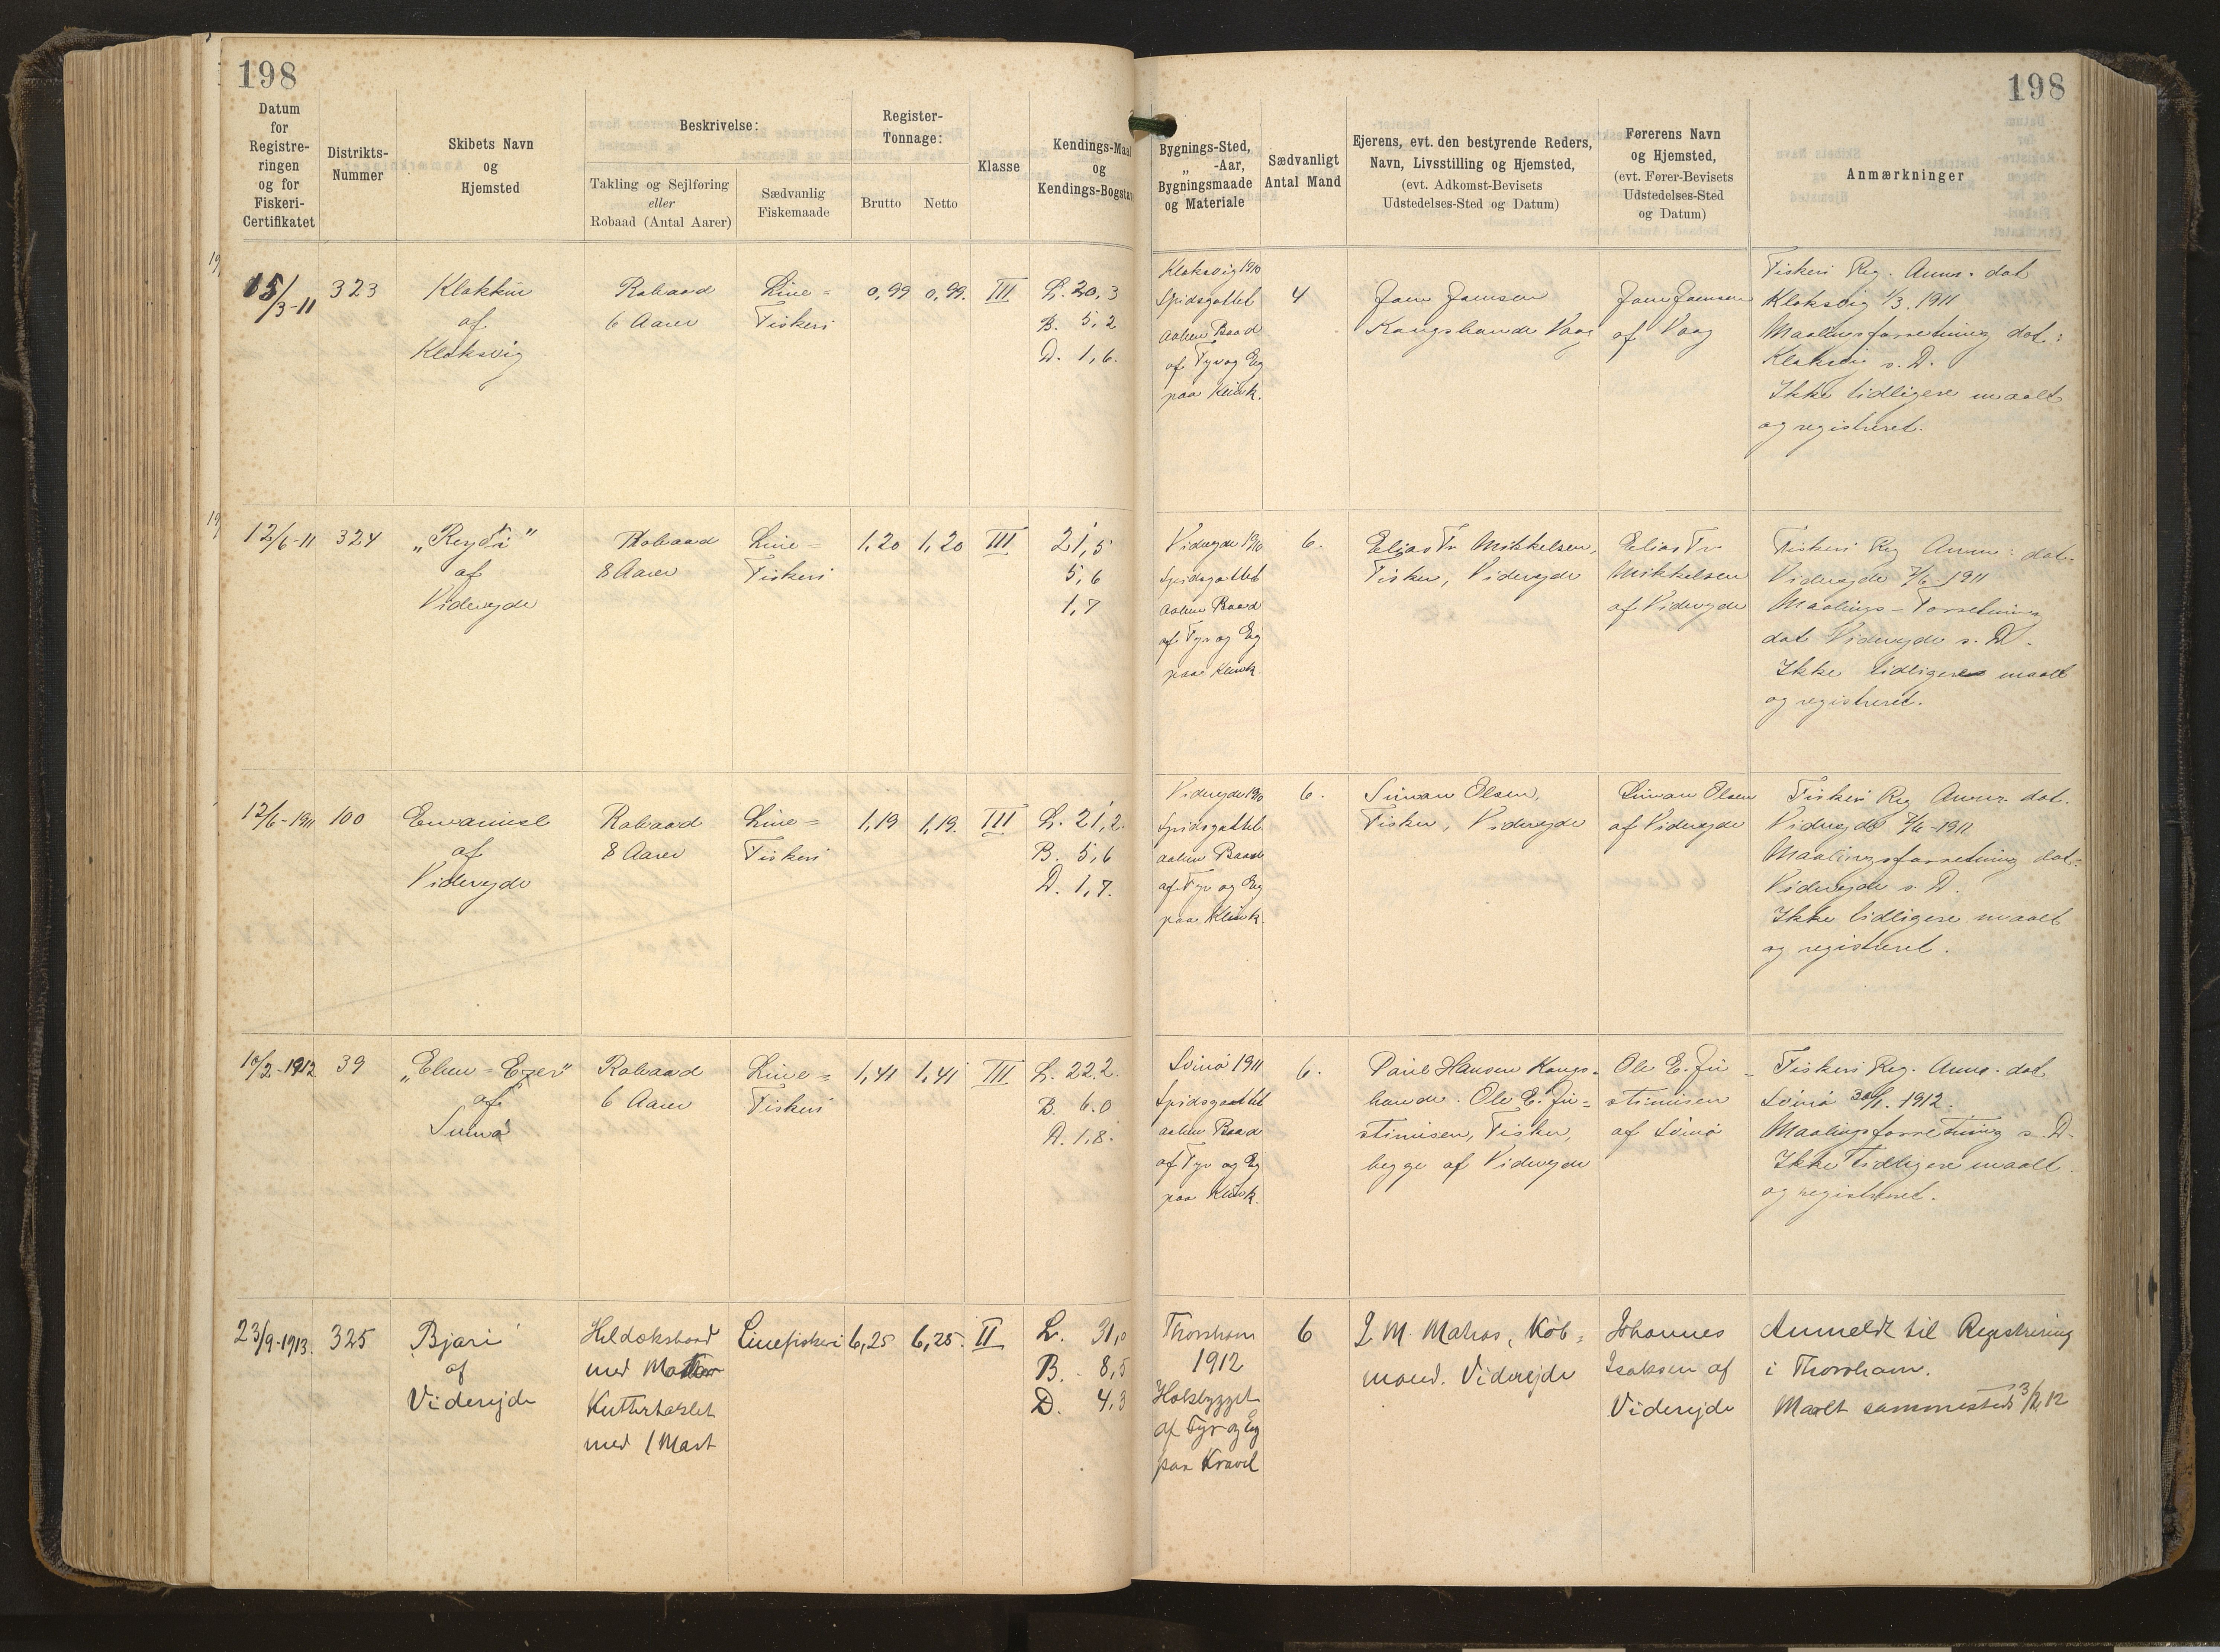 198
198
Datum
for
Registre-
ringen
og for
Fiskeri-
Certifikatet
Distrikts-
Nummer
Skibets Navn
og
Hjemsted
Beskrivelse:
Takling og Sejlføring
eller
Robaad (Antal Aarer)
Sædvanlig
Fiskemaade
Register-
Tonnage:
Brutto
Netto
Klasse
Kendings-Maal
og
Kendings-Bogstav
Bygnings-Sted,
„ -Aar,
Bygningsmaade
og Materiale
Sædvanligt
Antal Mand
Ejerens, evt. den bestyrende Reders,
Navn, Livsstilling og Hjemsted,
(evt. Adkomst-Bevisets
Udstedelses-Sted og Datum)
Førerens Navn
og Hjemsted,
(evt. Fører-Bevisets
Udstedelses-Sted
og Datum)
Anmærkninger
15/3-11
323
Klakkur
af
Klaksvig
Robaad
6 Aarer
Line=
Fiskeri
0,99
0,99.
III
L. 20,3
B. 5,2
D. 1,6.
Klaksvig 1910
Spidsgattet
aaben Baad
af Fyr og Eg
paa Klink.
4
Joen Joensen
Kongsbonde Vaag
Joen Joensen
af Vaag
Fiskeri Reg. Anm. dat
Klaksvig 1/3. 1911
Maalingsforretning dat:
Klaksvig s. D.
Ikke tidligere maalt
og registreret.
12/6-11
324
„Reydi"
af
Viderejde
Robaad
8 Aarer
Line=
Fiskeri
1,20
1,20
III
21,5
5,6
1,7
Viderejde 1910
Spidsgattet
aaben Baad
af Fyr og Eg
paa Klink.
6.
Elias Fr Mikkelsen,
Fisker, Viderejde
Elias Fr
Mikkelsen
af Viderejde
Fiskeri Reg Anm: dat.
Viderejde 7/6-1911
Maalings-Forretning
dat Viderejde s. D.
Ikke tidligere maalt
og registreret.
12/6-1911
100
Emanuel
af
Viderejde
Robaad
8 Aarer
Line=
Fiskeri
1,19
1,19.
III
L. 21,2.
B. 5,6
D. 1,7.
Viderejde 1910
Spidsgattet
aaben Baad
af Fyr og Eg
paa Klink.
6.
Simon Olsen,
Fisker, Viderejde
Simon Olsen
af Viderejde
Fiskeri Reg Anm. dat.
Viderejde 7/6-1911
Maalingsforretning dat:
Viderejde s. D.
Ikke tidligere maalt
og registreret.
10/2-1912
39
„Eben-Ezer"
af
Svinø
Robaad
6 Aarer
Line=
Fiskeri
1,41
1,41
III
L. 22.2.
B. 6.0
D. 1,8.
Svinø 1911
Spidsgattet
aaben Baad
af Fyr og Eg
paa Klink.
6.
Poul Hansen Kongs-
bonde. Ole E. Ju=
stinisen, Fisker,
begge af Viderejde
Ole E. Ju-
stinisen
af Svinø
Fiskeri Reg. Anm. dat
Svinø 30/1. 1912.
Maalingsforretning s. D.
Ikke tidligere maalt
og registreret.
23/9-1913.
325
Bjari
af
Viderejde
Heldæksbaad
med Motor
Kuttertaklet
med 1 Mast
Linefiskeri
6,25
6,25.
II
L. 31,0
B. 8,5
D. 4,3
Thorshavn
1912
af Fyr og Eg
paa Kravel
6
J. M. Matras, Køb=
mand. Viderejde
Johannes
Isaksen af
Viderejde
Anmeldt til Registrering
i Thorshavn.
Maalt sammesteds 3/12 12